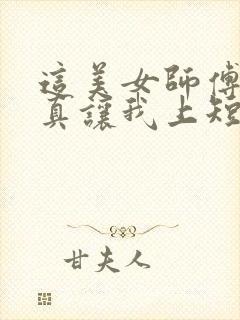 這美女師傅
真讓我上短
甘夫人